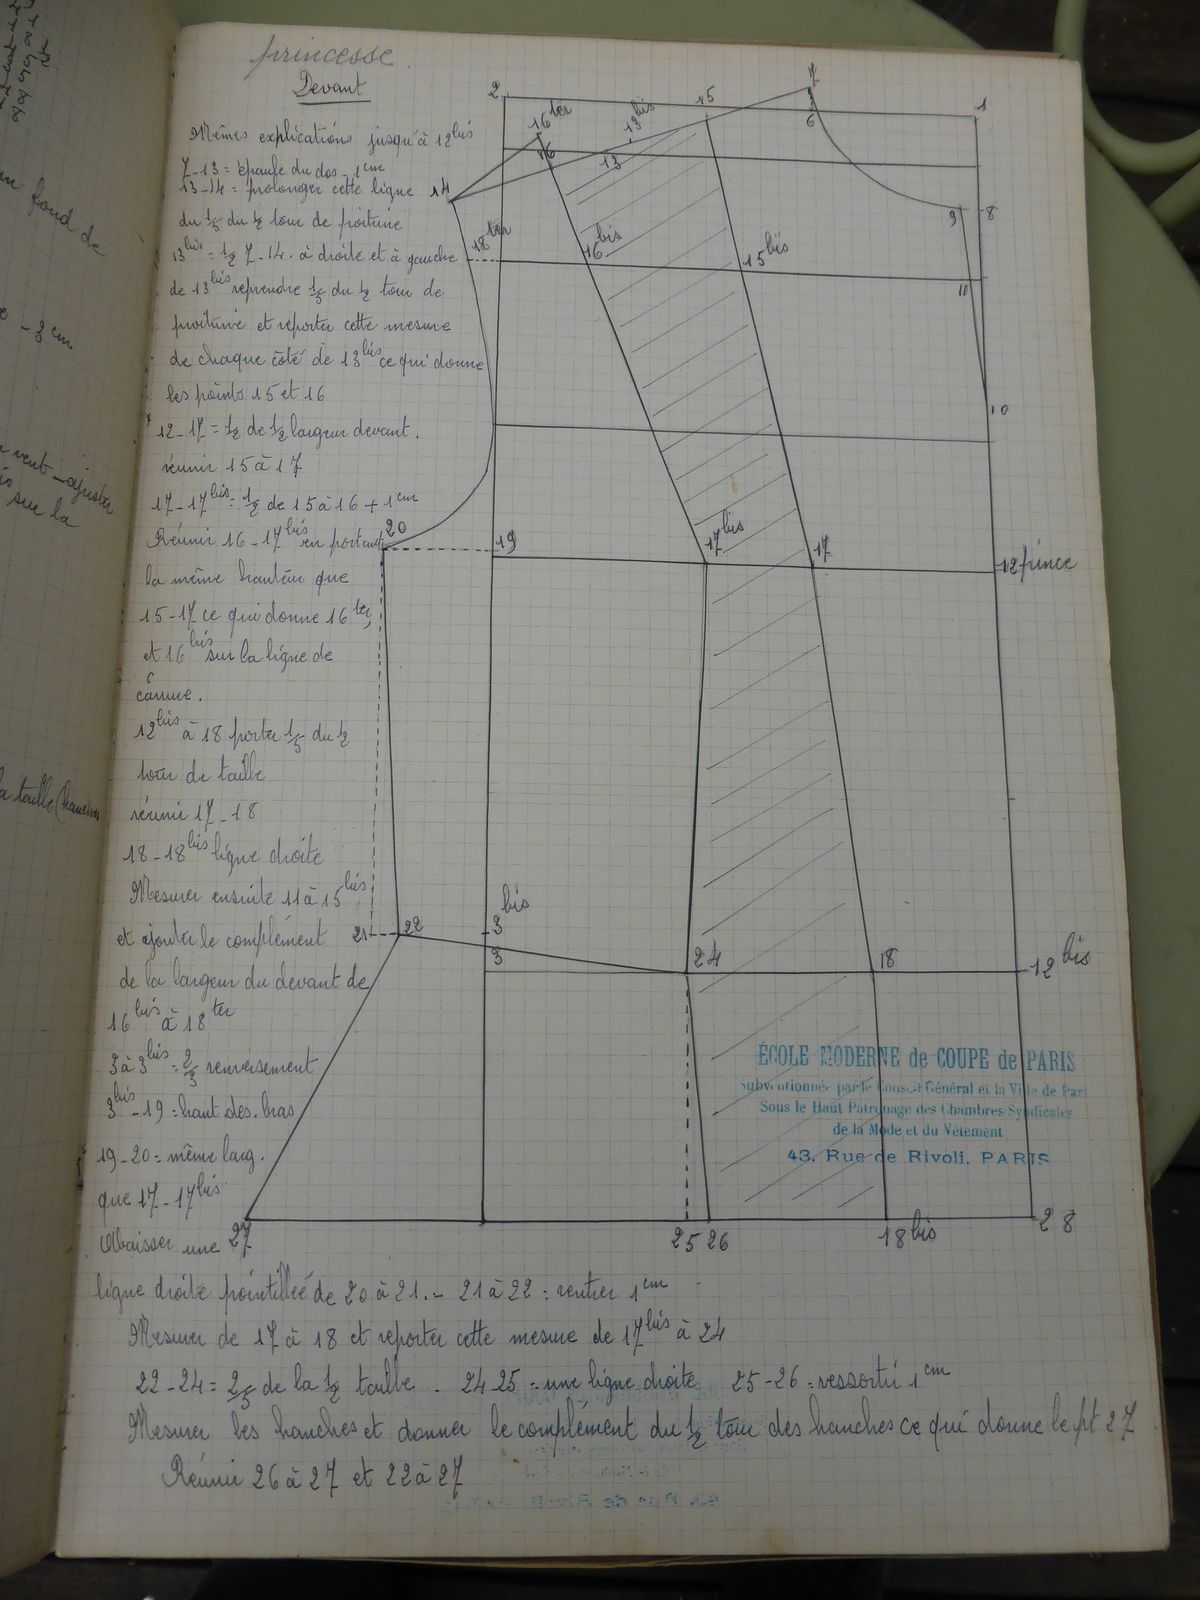 princesse
Devant
Mêmes explications jusqu'à 12bis
7-13 = épaule du dos - 1cm
13-14 = prolonger cette ligne
du 1/5 du 1/2 tour de poitrine
13bis = 1/2 7-14. à droite et à gauche
de 13bis reprendre 1/5 du 1/2 tour de
poitrine et reporter cette mesure
de chaque côté de 13bis ce qui donne
les points 15 et 16
12-17 = 1/2 de 1/2 largeur devant.
réunir 15 à 17
17-17bis = 1/2 de 15 à 16 + 1cm
Réunir 16-17bis en portant
la même hauteur que
15-17 ce qui donne 16ter,
et 16bis sur la ligne de
carrure.
12bis à 18 porter 1/5 du 1/2
tour de taille
réunir 17-18
18-18bis ligne droite
Mesurer ensuite 11 à 15bis
et ajouter le complément
de la largeur du devant de
16bis à 18ter
3 à 3bis = 2/3 renversement
3bis-19 = haut des. bras
19-20 = même larg.
que 17-17bis
Abaisser une
ligne droite pointillée de 20 à 21. - 21 à 22 = rentrer 1cm
Mesurer de 17 à 18 et reporter cette mesure de 17bis à 24
22-24 = 2/5 de la 1/2 taille. 24 25 = une ligne droite 25-26 = ressortir 1cm
Mesurer les hanches et donner le complément du 1/2 tour des hanches ce qui donne le pt 27
Réunir 26 à 27 et 22 à 27
2
16ter
16
13bis
13
15
7
6
1
14
9
8
18ter
16bis
15bis
11
10
20
19
17bis
17
12 pince
21
22
3bis
3
24
18
12bis
27
25 26
18bis
28
ÉCOLE MODERNE de COUPE de PARIS
Subventionnée par le Conseil Général et la Ville de Par
Sous le Haut Patronage des Chambres Syndicales
de la Mode et du Vêtement
43, Rue de Rivoli, PARIS
fond de
- 3cm
veut - ajuster
sur la
la taille (hanches